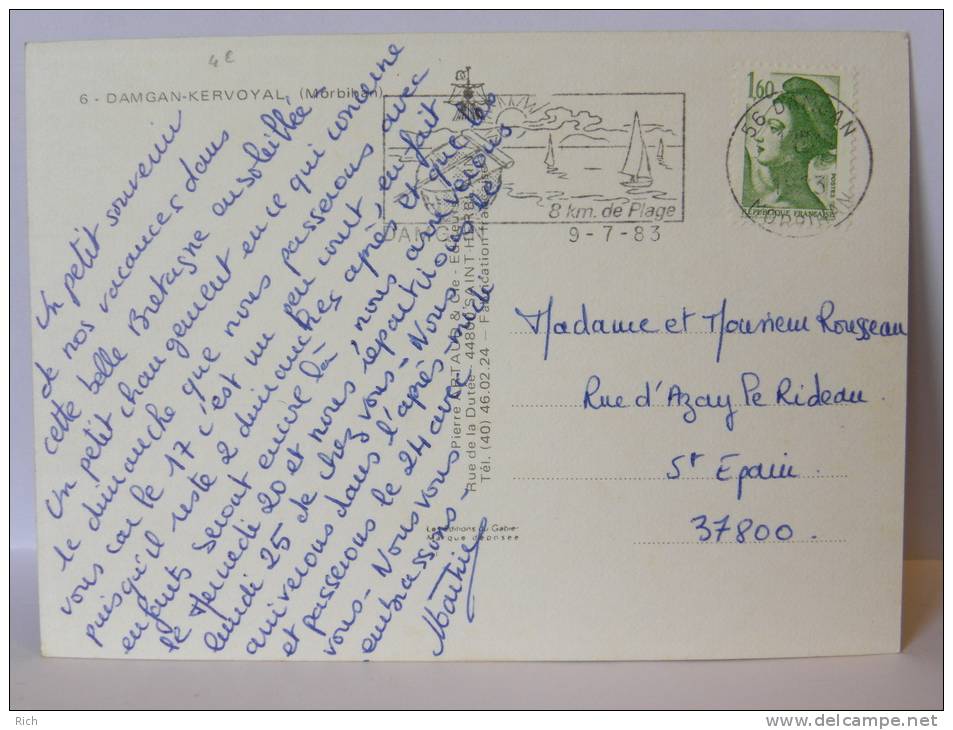 4€
6 - DAMGAN-KERVOYAL (Morbihan)
Un petit souvenir
de nos vacances dans
cette belle Bretagne ensoleillée.
Un petit changement en ce qui concerne
le dimanche que nous passerons avec
vous car le 17 c'est un peu court en fait
puisqu'il reste 2 dimanches après et que les
enfants seront encore là
le Mercredi 20 et nous
lundi 25 de chez vous - Nous
arriverons dans l'après
et passerons le 24 avec
vous - Nous vous
embrassons -
Pierre ARTAUD & Cie - Editeurs
Rue de la Dutée - 44800 SAINT HERBLAIN
Tél. (40) 46.02.24 - Fabrication française
Les éditions du Gabier
Marque déposée
8 km. de Plage
DAMGAN
9-7-83
1,60
POSTES
REPUBLIQUE FRANÇAISE
56 DAMGAN
MORBIHAN
Madame et Monsieur Rousseau
Rue d'Azay le Rideau
St Epain
37800
Rich
www.delcampe.net